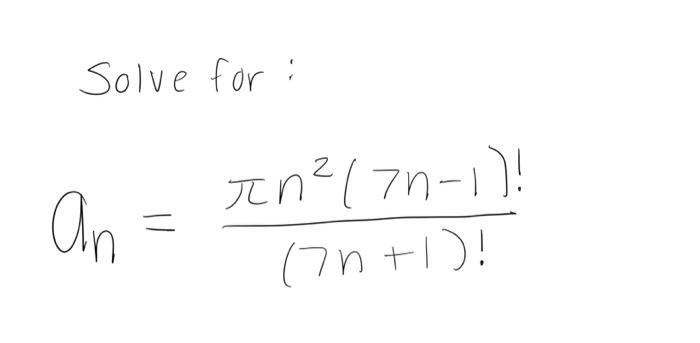 Solve for :
aₙ = πn²(7n-1)! / (7n+1)!